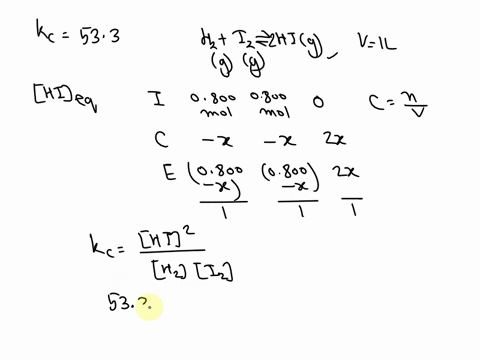 Kc = 53.3
H2 + I2 ⇌ 2HI(g), V=1L
(g) (g)
[HI]eq
I 0.800 mol 0.800 mol 0
C = n/V
C -x -x 2x
E (0.800-x)/1 (0.800-x)/1 2x/1
Kc = [HI]^2/[H2][I2]
53.